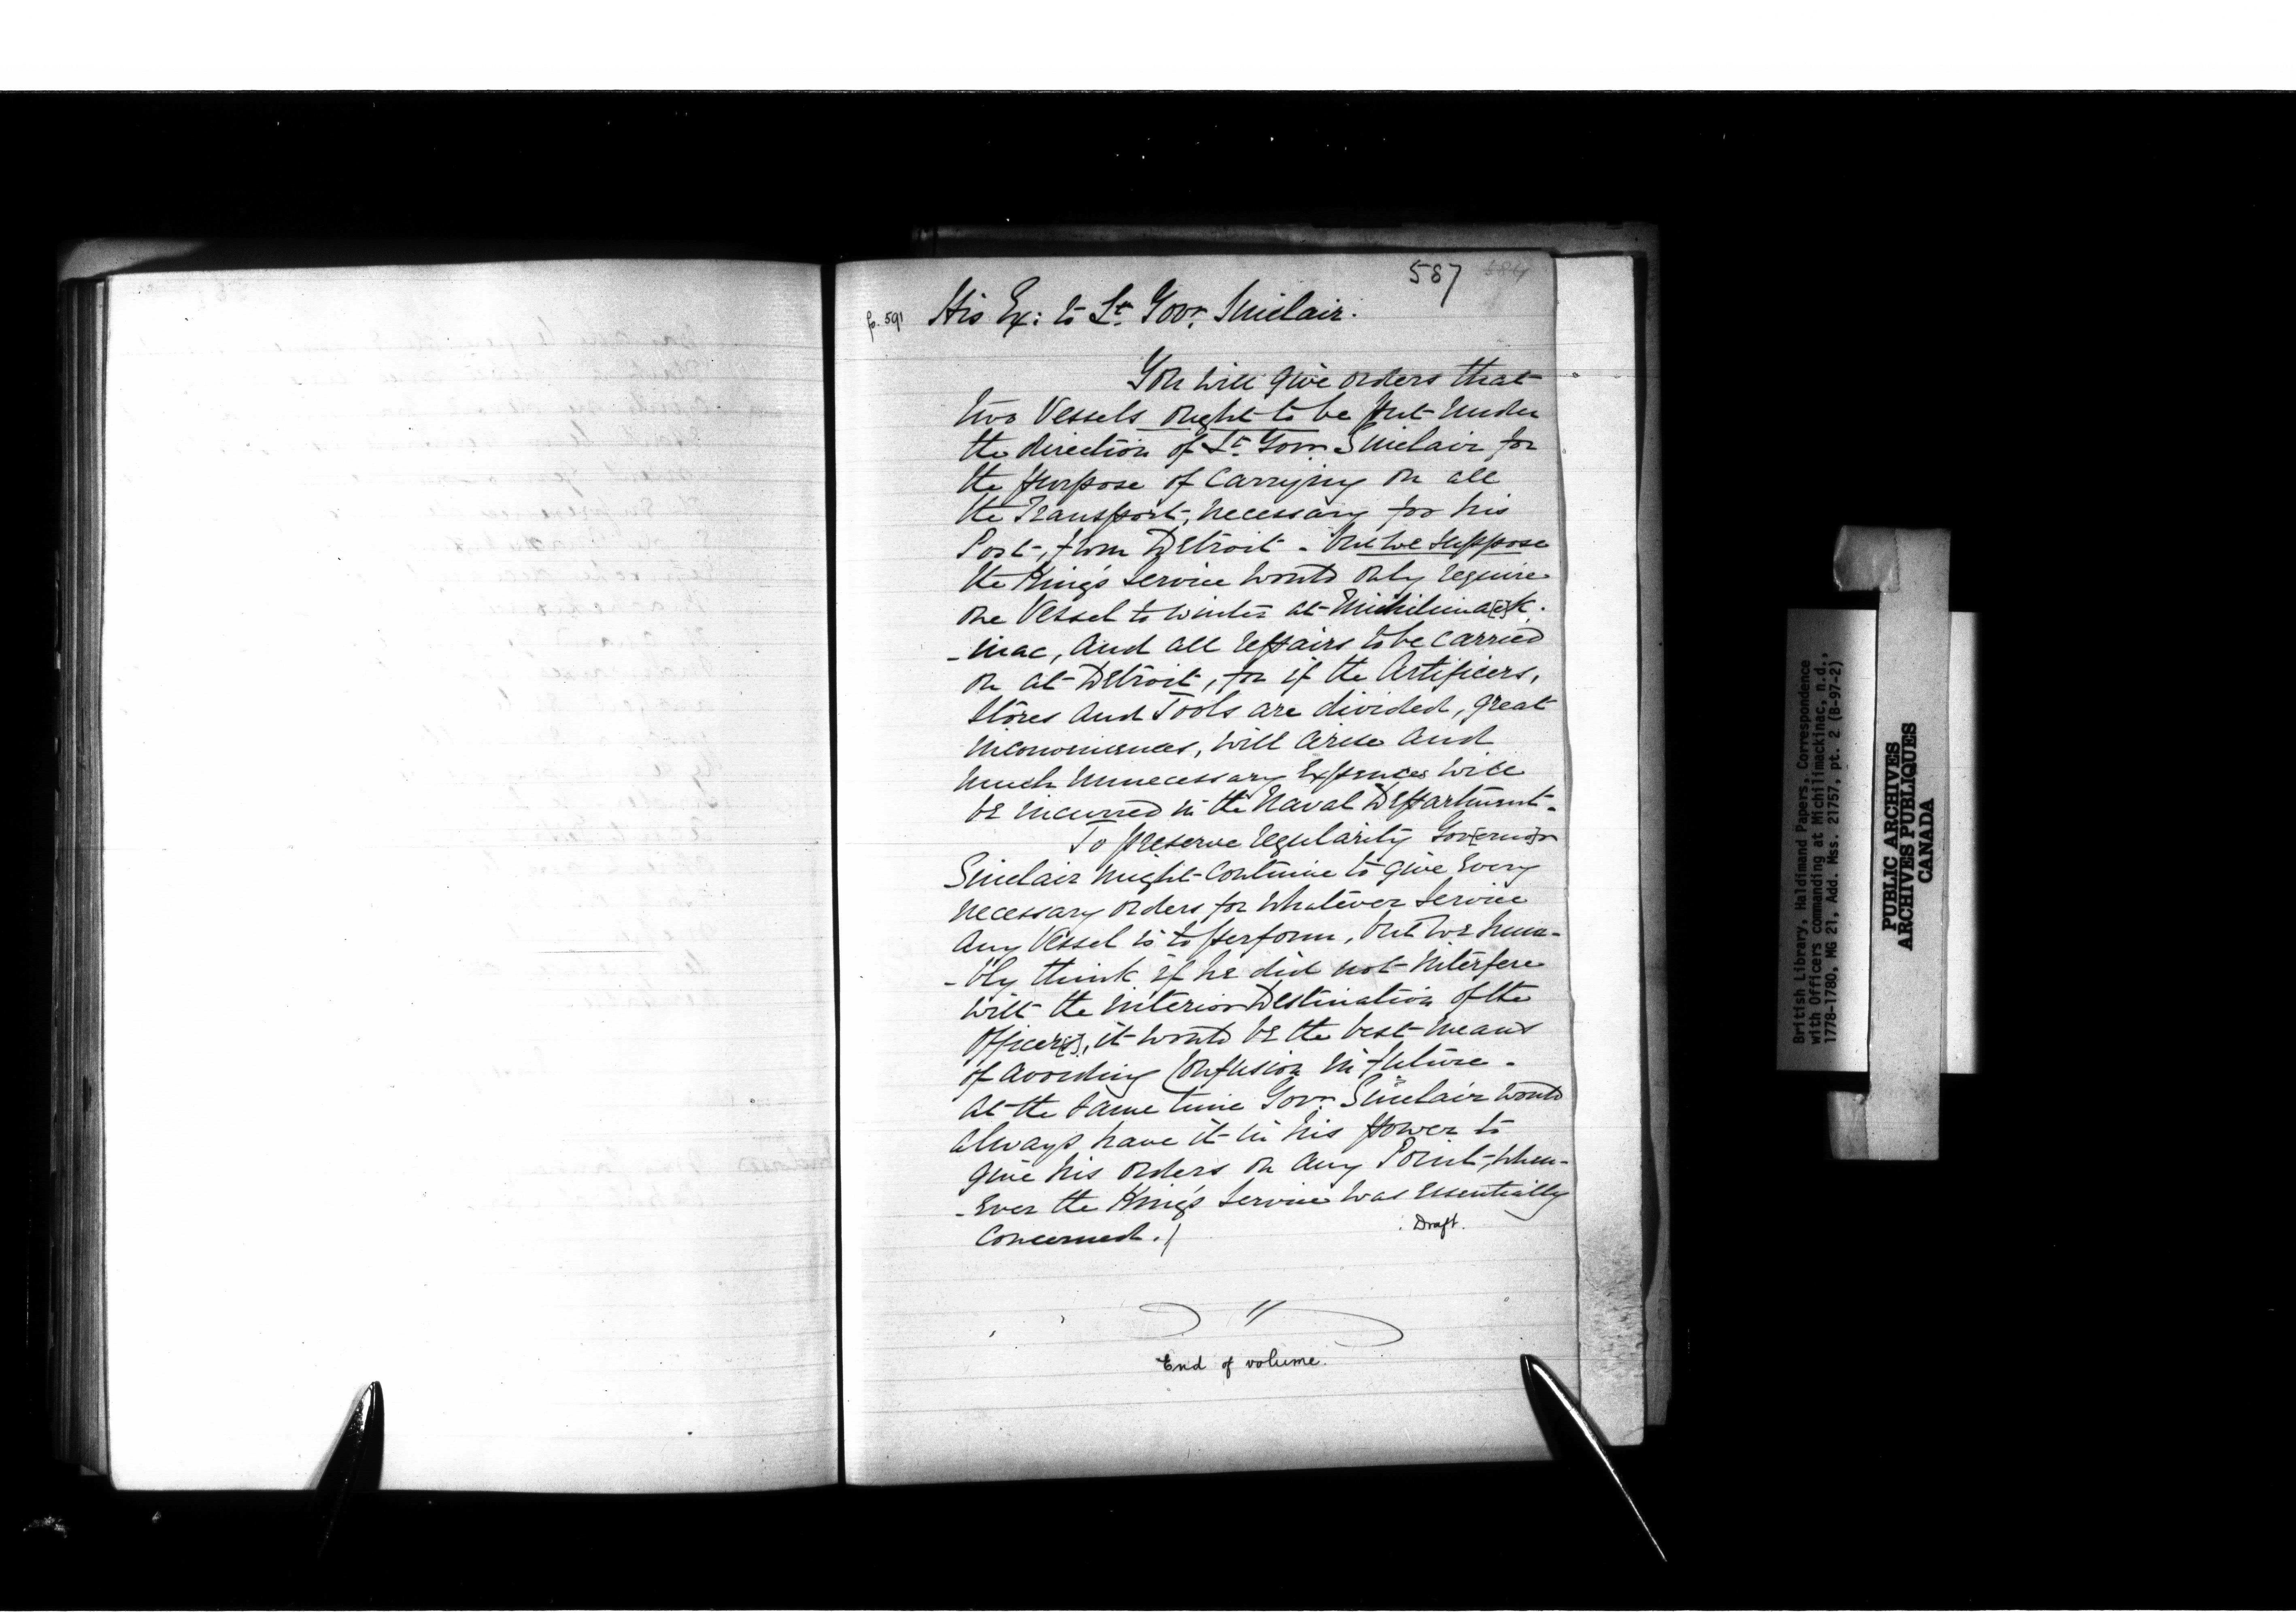 587 584
p. 591 His Ex: to Lt. Govr. Sinclair.
You will give orders that
two Vessels ought to be put under
the direction of Lt. Govr. Sinclair for
the purpose of carrying on all
the Transport, necessary for his
Post, from Detroit - but we suppose
the King's Service would only require
one Vessel to winter at Michilima[c]k.
-inac, and all repairs to be carried
on at Detroit, for if the Artificers,
Stores and Tools are divided, great
inconveniences, will arise and
much unnecessary Expences will
be incurred in the Naval Department.
To preserve regularity Gov[erno]r
Sinclair might continue to give Every
necessary orders for whatever Service
any Vessel is to perform, but we hum-
-bly think if he did not interfere
with the interior Destination of the
Officer[s], it would be the best means
of avoiding Confusion in future -
at the same time Govr. Sinclair would
always have it in his power to
give his orders on any Point, when-
-Ever the King's Service was Essentially
Concerned.
Draft.
End of volume.
British Library, Haldimand Papers, Correspondence
with Officers commanding at Michilimackinac, n.d.,
1778-1780, MG 21, Add. Mss. 21757, pt. 2 (B-97-2)
PUBLIC ARCHIVES
ARCHIVES PUBLIQUES
CANADA